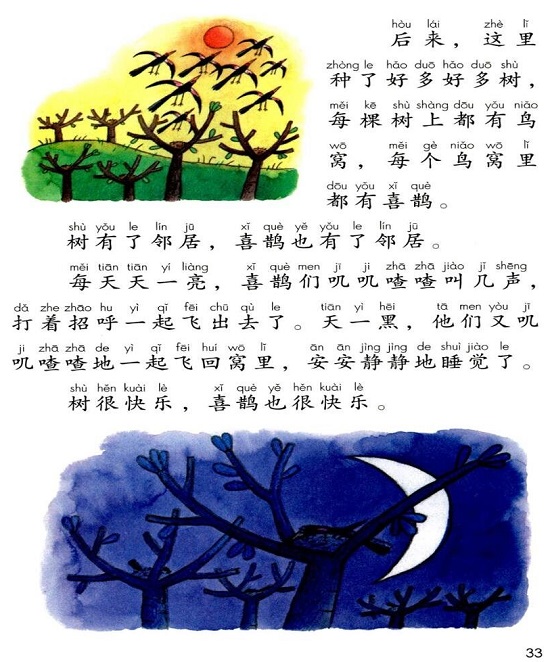 hòu lái zhè lǐ
后来，这里
zhòng le hǎo duō hǎo duō shù
种了好多好多树，
měi kē shù shàng dōu yǒu niǎo
每棵树上都有鸟
wō měi gè niǎo wō lǐ
窝，每个鸟窝里
dōu yǒu xǐ què
都有喜鹊。
shù yǒu le lín jū xǐ què yě yǒu le lín jū
树有了邻居，喜鹊也有了邻居。
měi tiān tiān yí liàng xǐ què men jī ji zhā zhā jiào jǐ shēng
每天天一亮，喜鹊们叽叽喳喳叫几声，
dǎ zhe zhāo hu yì qǐ fēi chū qù le tiān yì hēi tā men yòu jī
打着招呼一起飞出去了。天一黑，他们又叽
ji zhā zhā de yì qǐ fēi huí wō lǐ ān ān jìng jìng de shuì jiào le
叽喳喳地一起飞回窝里，安安静静地睡觉了。
shù hěn kuài lè xǐ què yě hěn kuài lè
树很快乐，喜鹊也很快乐。
33